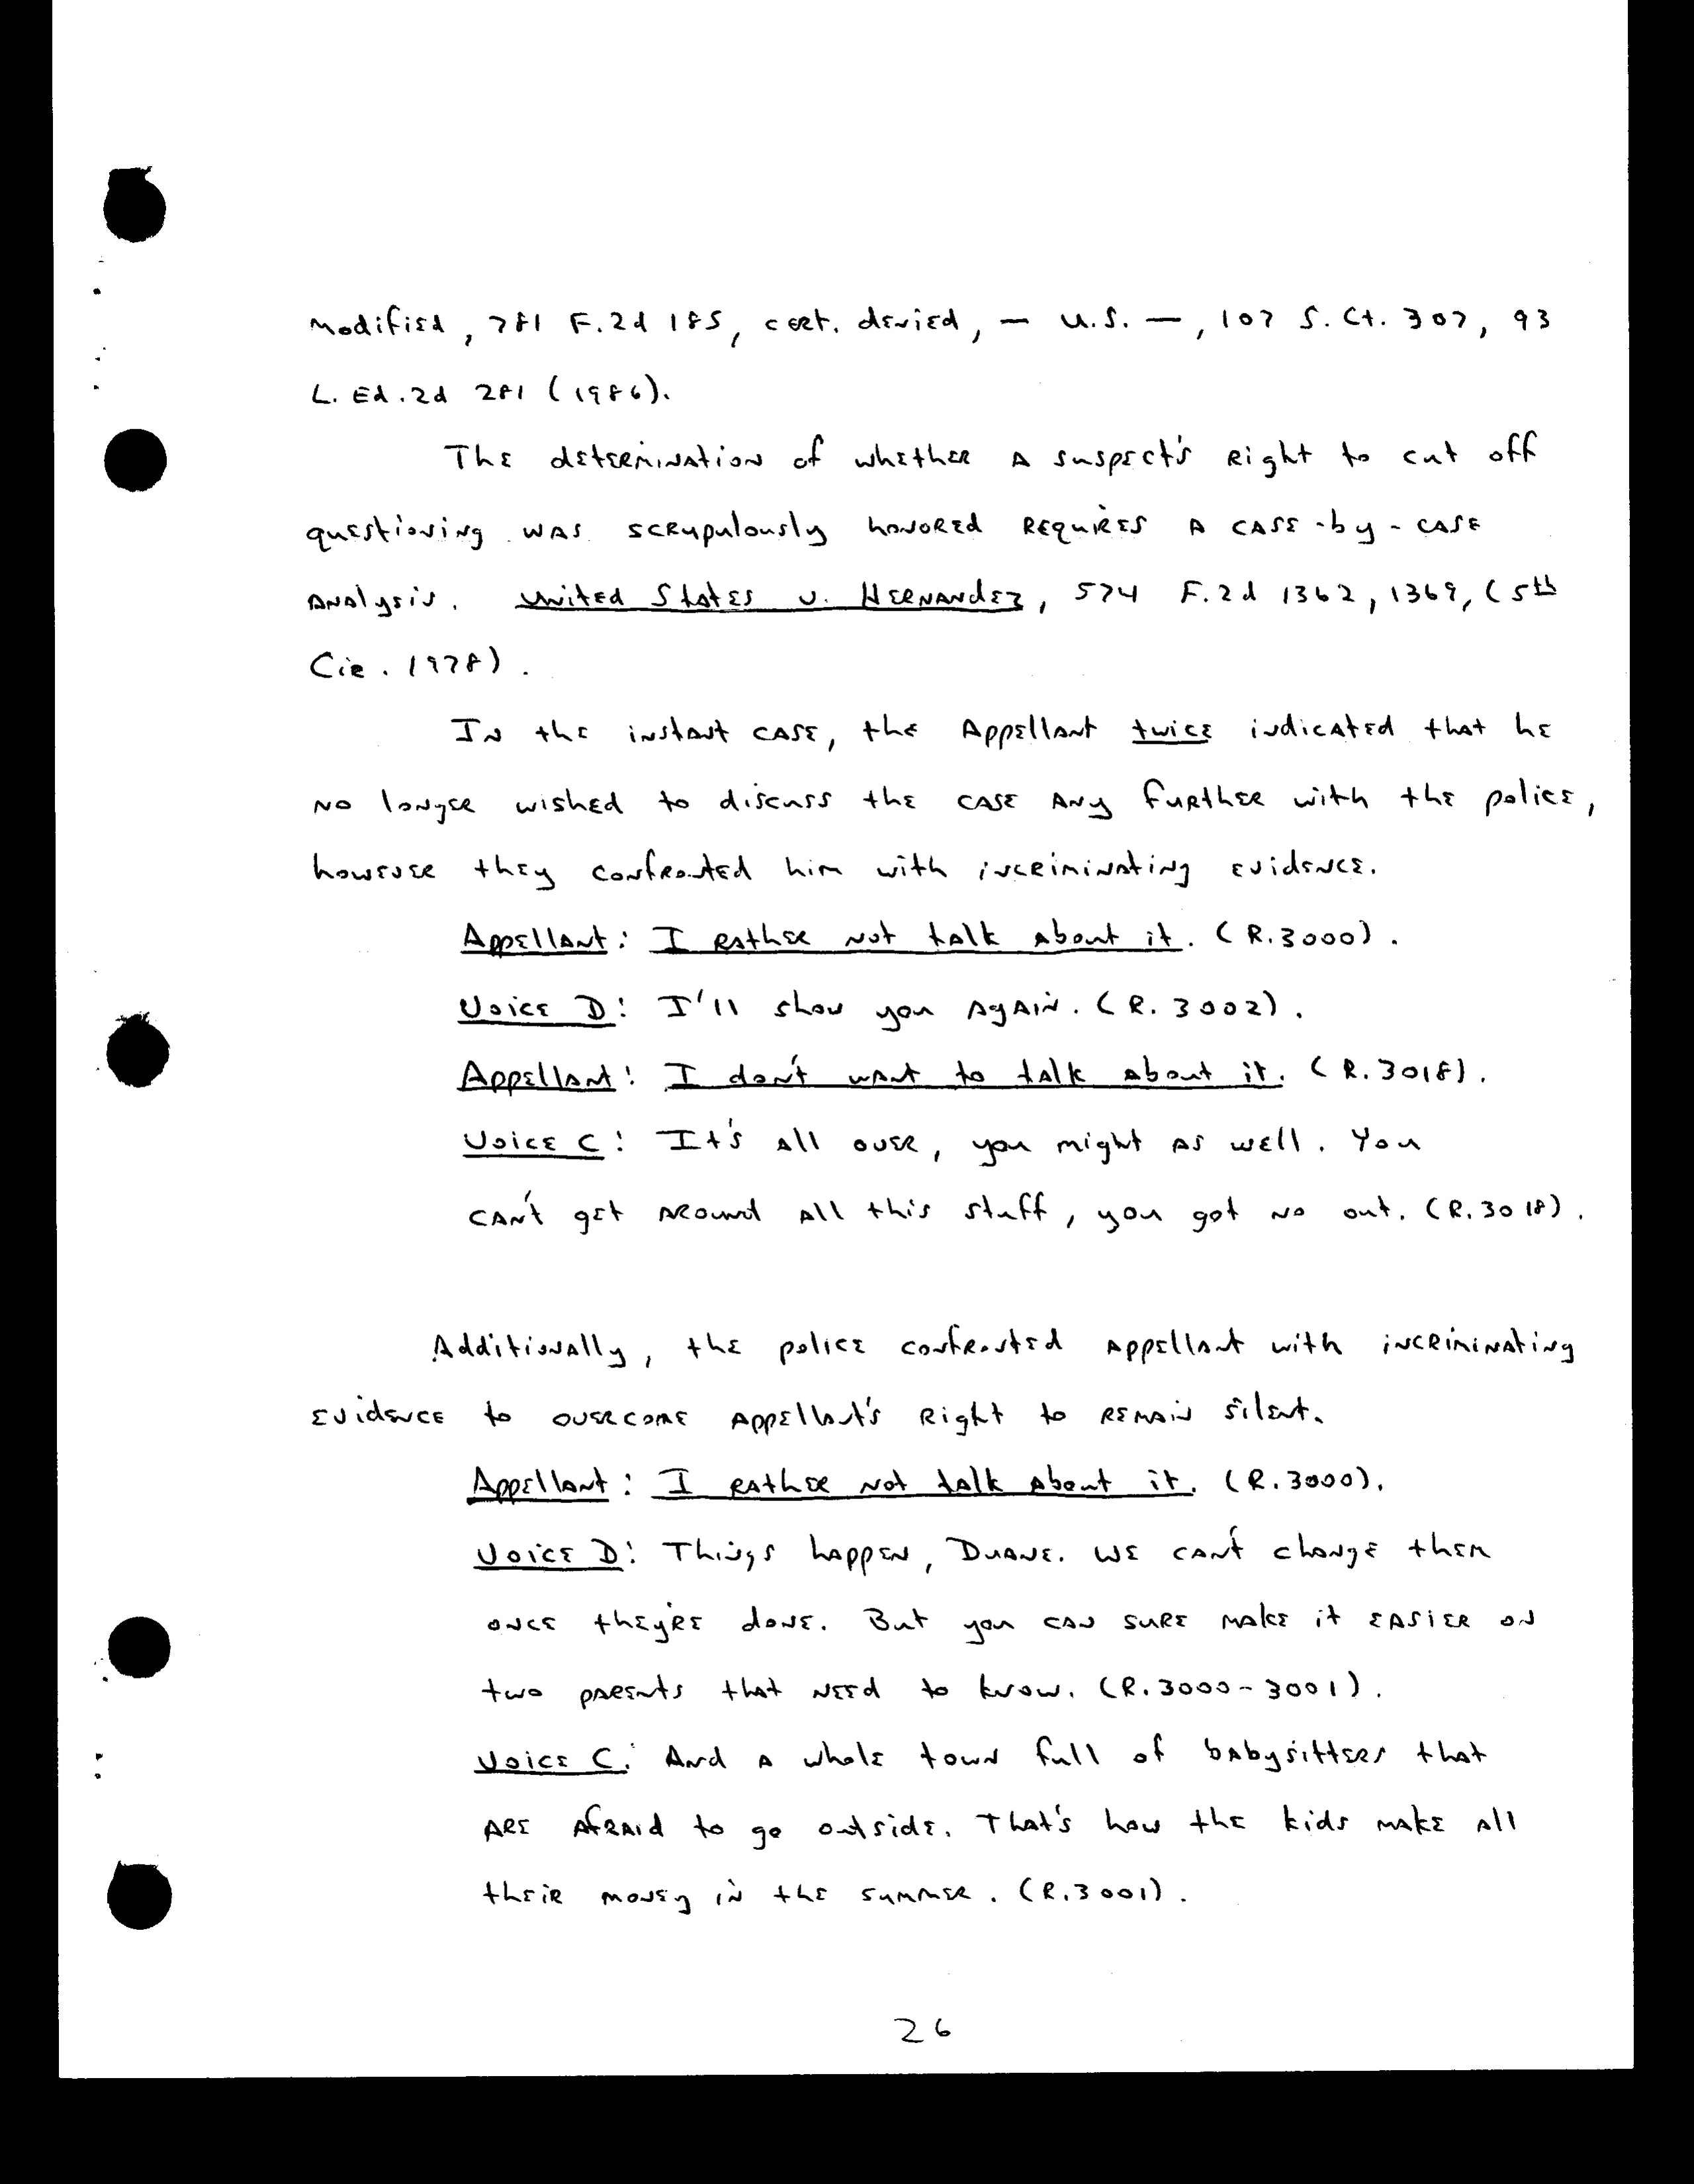 modified, 781 F.2d 185, cert. denied, — U.S. —, 107 S. Ct. 307, 93
L. Ed. 2d 281 (1986).
The determination of whether a suspect's right to cut off
questioning was scrupulously honored requires a case-by-case
analysis. United States v. Hernandez, 574 F.2d 1362, 1369, (5th
Cir. 1978).
In the instant case, the Appellant twice indicated that he
no longer wished to discuss the case any further with the police,
however they confronted him with incriminating evidence.
Appellant: I rather not talk about it. (R.3000).
Voice D: I'll show you again. (R. 3002).
Appellant: I don't want to talk about it. (R.3018).
Voice C: It's all over, you might as well. You
can't get around all this stuff, you got no out. (R.3018).
Additionally, the police confronted appellant with incriminating
evidence to overcome appellant's right to remain silent.
Appellant: I rather not talk about it. (R.3000).
Voice D: Things happen, Duane. We can't change them
once they're done. But you can sure make it easier on
two parents that need to know. (R.3000-3001).
Voice C: And a whole town full of babysitters that
are afraid to go outside. That's how the kids make all
their money in the summer. (R.3001).
26